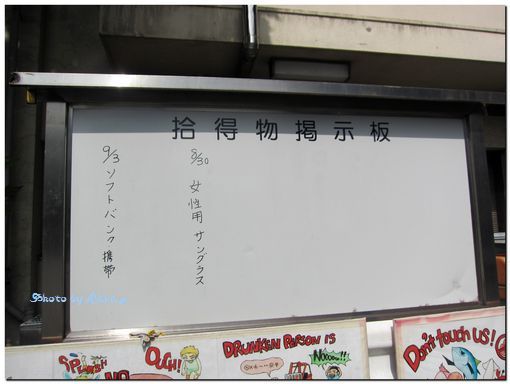 拾得物掲示板
8/30 女性用サングラス
9/3 ソフトバンク携帯
Photo by
OUCH!
DRUNKEN PERSON IS
Nooo!!
Don't touch US!
NO